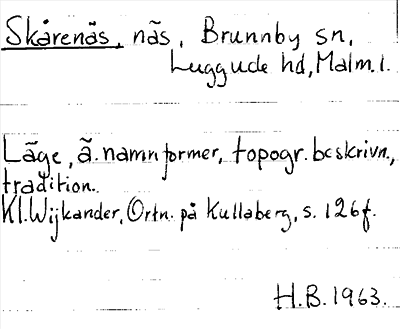 Skårenäs, näs, Brunnby sn,
Luggude hd, Malm.l.
Läge, ä. namnformer, topogr. beskrivn.,
tradition.
Kl. Wijkander, Ortn. på Kullaberg, s. 126f.
H.B. 1963.